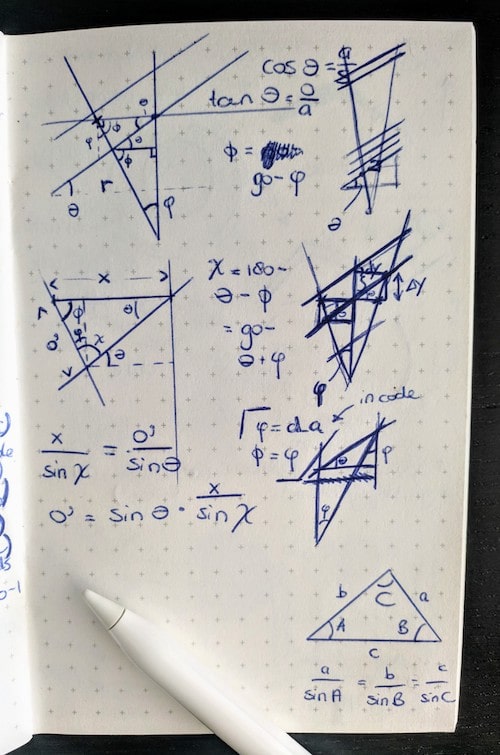 cos θ =
tan θ = o/a
ϕ =
90 - φ
θ
φ
ϕ
θ
ϕ
r
θ
φ
θ
x
r
ϕ
θ
o'
χ
θ
χ = 180 -
θ - ϕ
= 90 -
θ + φ
Δy
φ
in code
φ = da
ϕ = φ
θ
φ
φ
x/sin χ = o'/sin θ
o' = sin θ · x/sin χ
b
C
a
A
B
c
a/sin A = b/sin B = c/sin C
0-1